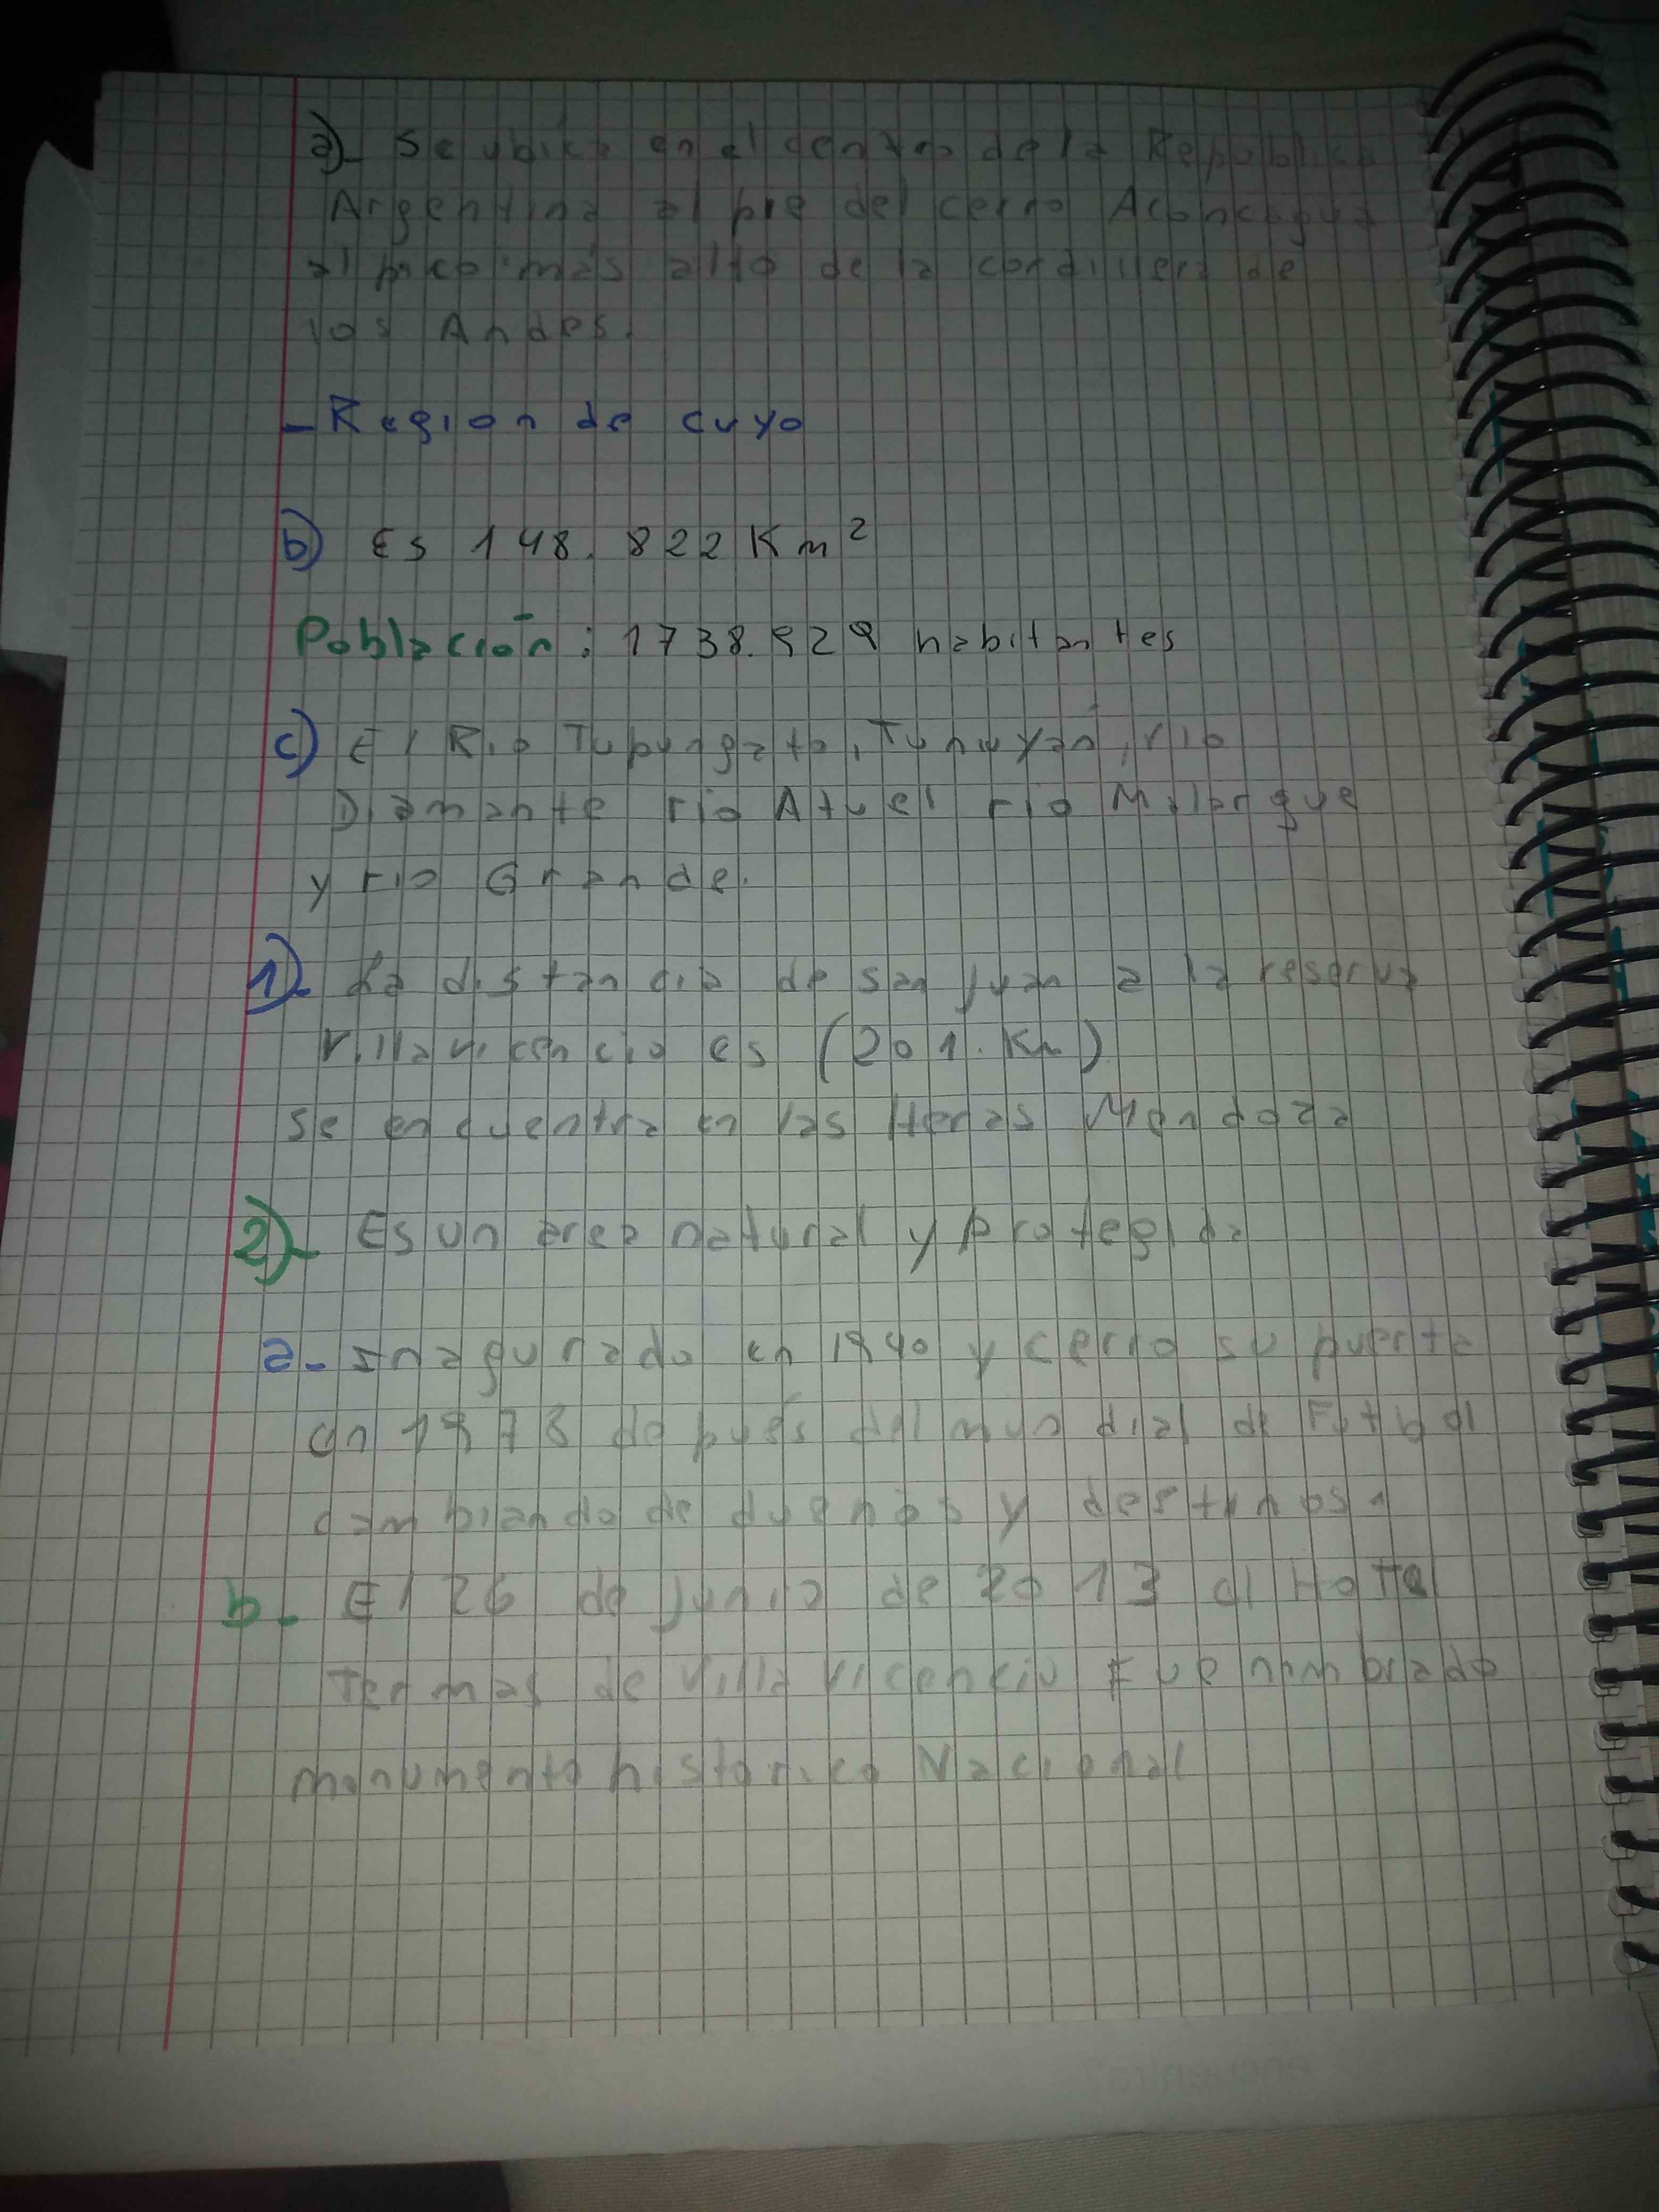 a)- Se ubica en el centro de la Republica
Argentina al pie del cerro Aconcagua
al pico más alto de la cordillera de
los Andes.
- Region de cuyo
b) Es 148.822 Km²
Población: 1738.929 habitantes
c) El Rio Tupungato, Tunuyán, rio
Diamante rio Atuel rio Malargue
y rio Grande.
1)- La distancia de San Juan a la reserva
Villavicencio es (201.Km)
se encuentra en las Heras Mendoza
2)- Es un area natural y protegida
a- Inagurado en 1940 y cerro su puerta
en 1978 depués del mundial de Futbol
cambiando de dueños y destinos.
b- El 26 de junio de 2013 el Hotel
Termas de Villa Vicencio Fue nombrado
monumento historico Nacional